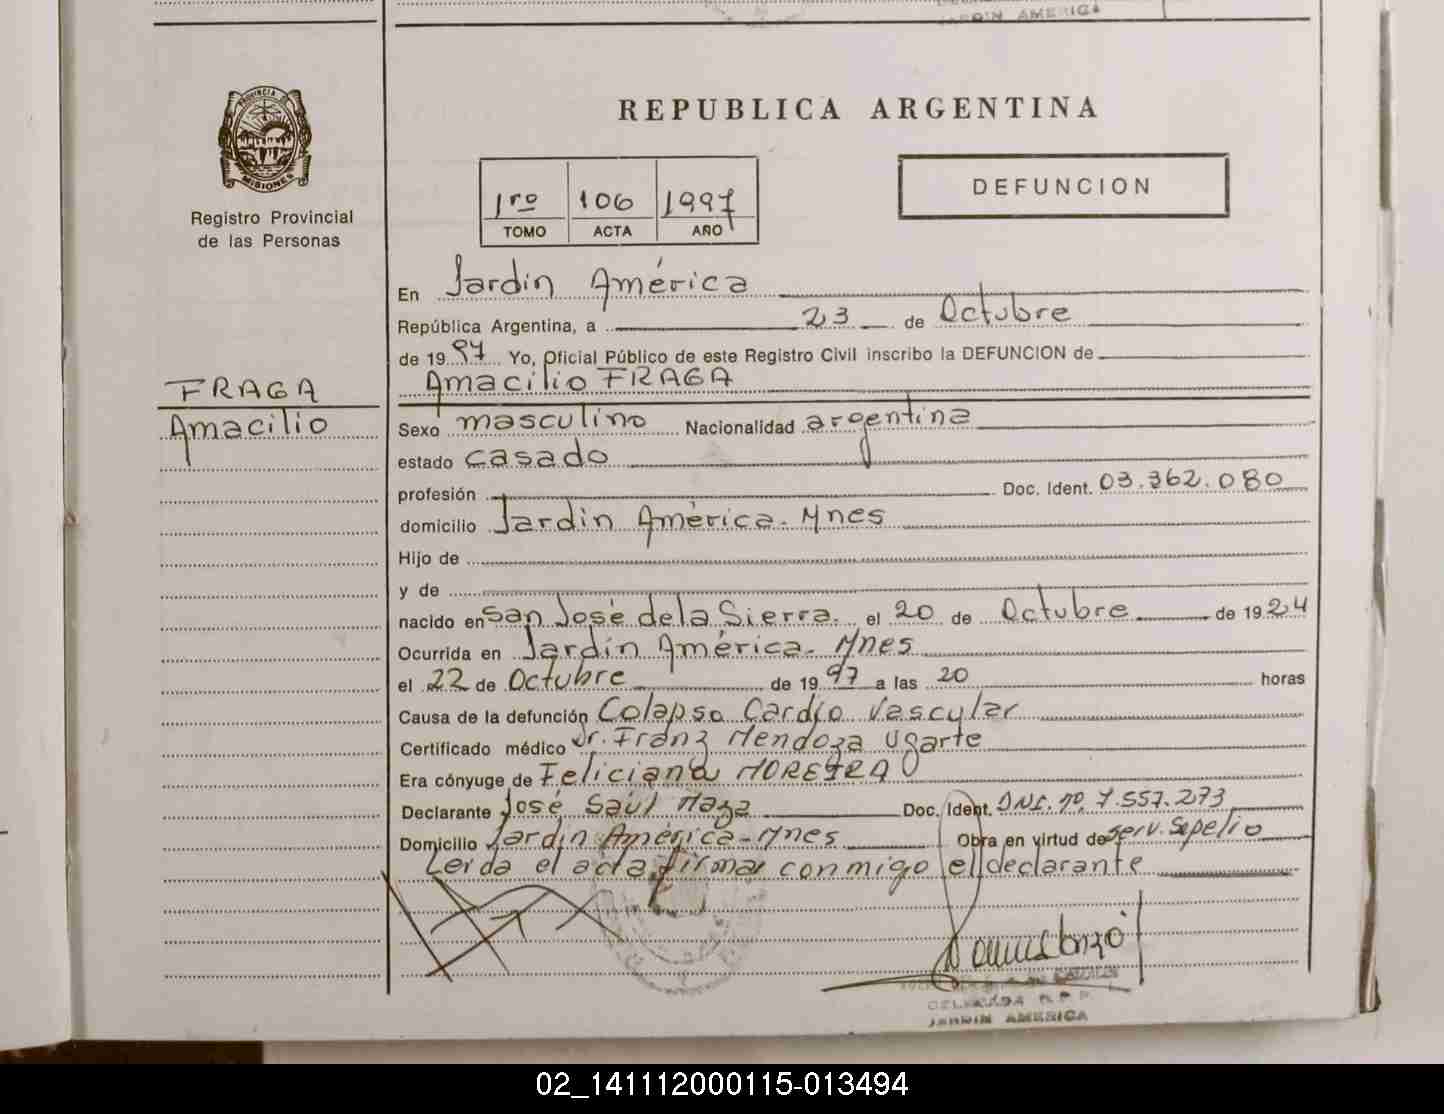 JARDIN AMERICA
PROVINCIA DE
MISIONES
Registro Provincial
de las Personas
REPUBLICA ARGENTINA
1ro 106 1997
TOMO ACTA AÑO
DEFUNCION
En Jardín América
República Argentina, a 23 de Octubre
de 19 97 Yo, Oficial Público de este Registro Civil inscribo la DEFUNCION de
FRAGA
Amacilio FRAGA
Amacilio
Sexo masculino Nacionalidad argentina
estado casado
profesión Doc. Ident. 03.362.080
domicilio Jardín América. Mnes
Hijo de
y de
nacido en San José de la Sierra. el 20 de Octubre de 19 24
Ocurrida en Jardín América. Mnes
el 22 de Octubre de 19 97 a las 20 horas
Causa de la defunción Colapso Cardio Vascular
Certificado médico Dr. Franz Mendoza Ugarte
Era cónyuge de Feliciana MOREIRA
Declarante José Saúl Maza Doc. Ident. DNI. nº. 7.557.273
Domicilio Jardín América - Mnes Obra en virtud de serv. Sepelio
Leída el acta firma conmigo el declarante
DELEGADA R.P.P.
JARDIN AMERICA
02_141112000115-013494